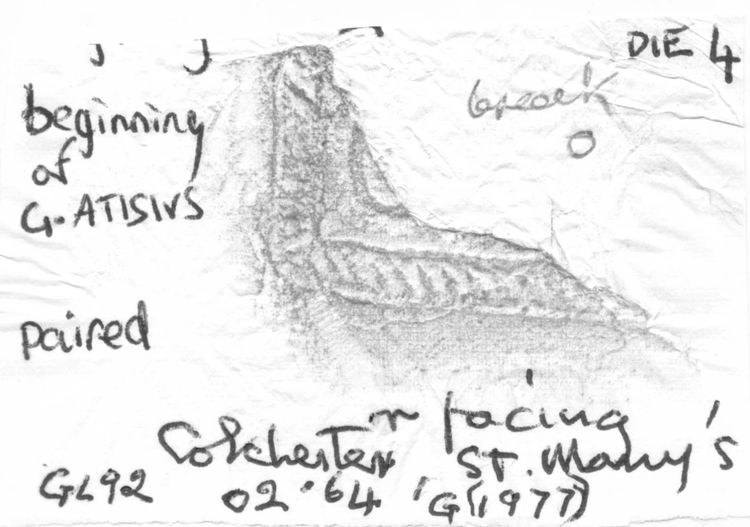 DIE 4
break
beginning
of
G. ATISIVS
paired
r facing
Colchester ST. Mary's
GL92 02.64 'G(1977)